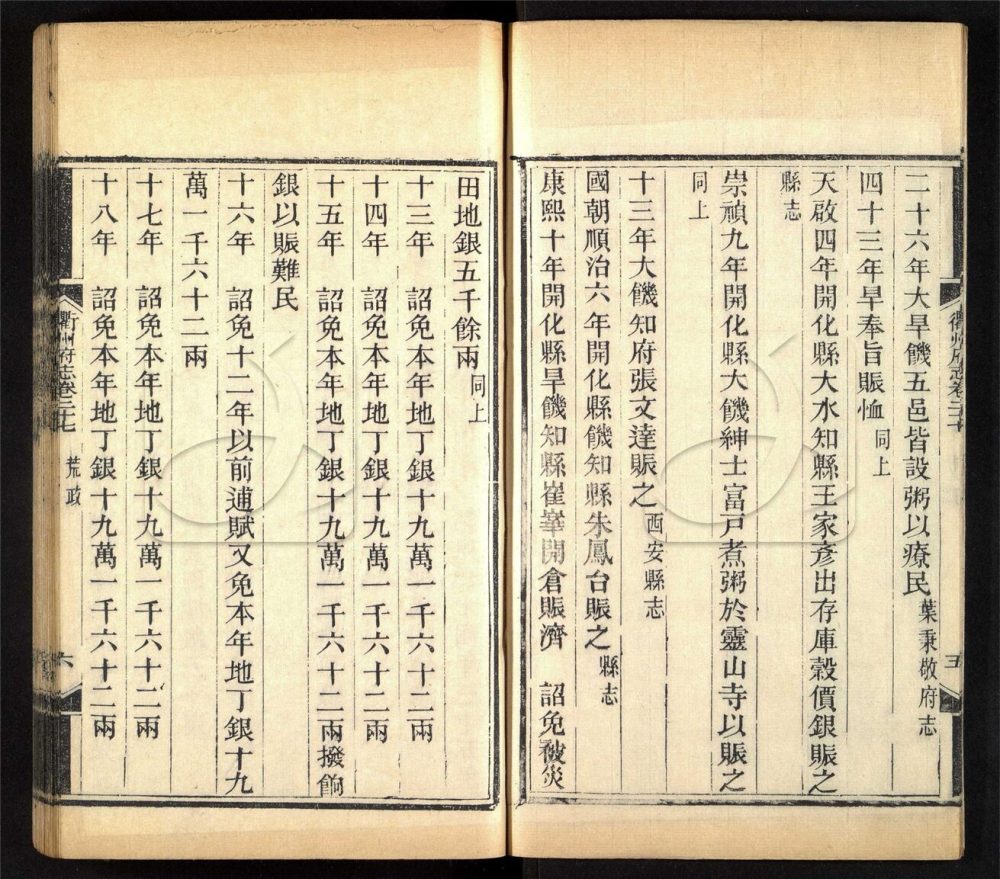 二十六年大旱饑五邑皆設粥以療民葉秉敬府志
四十三年旱奉旨賑恤同上
天啟四年開化縣大水知縣王家彥出存庫穀價銀賑之
縣志
崇禎九年開化縣大饑紳士富戸煮粥於靈山寺以賑之
同上
十三年大饑知府張文達賑之西安縣志
國朝順治六年開化縣饑知縣朱鳳台賑之縣志
康熙十年開化縣旱饑知縣崔華開倉賑濟 詔免被災
衢州府志卷二十七
五
田地銀五千餘兩同上
十三年 詔免本年地丁銀十九萬一千六十二兩
十四年 詔免本年地丁銀十九萬一千六十二兩
十五年 詔免本年地丁銀十九萬一千六十二兩撥餉
銀以賑難民
十六年 詔免十二年以前逋賦又免本年地丁銀十九
萬一千六十二兩
十七年 詔免本年地丁銀十九萬一千六十二兩
十八年 詔免本年地丁銀十九萬一千六十二兩
衢州府志卷二十七 荒政
六